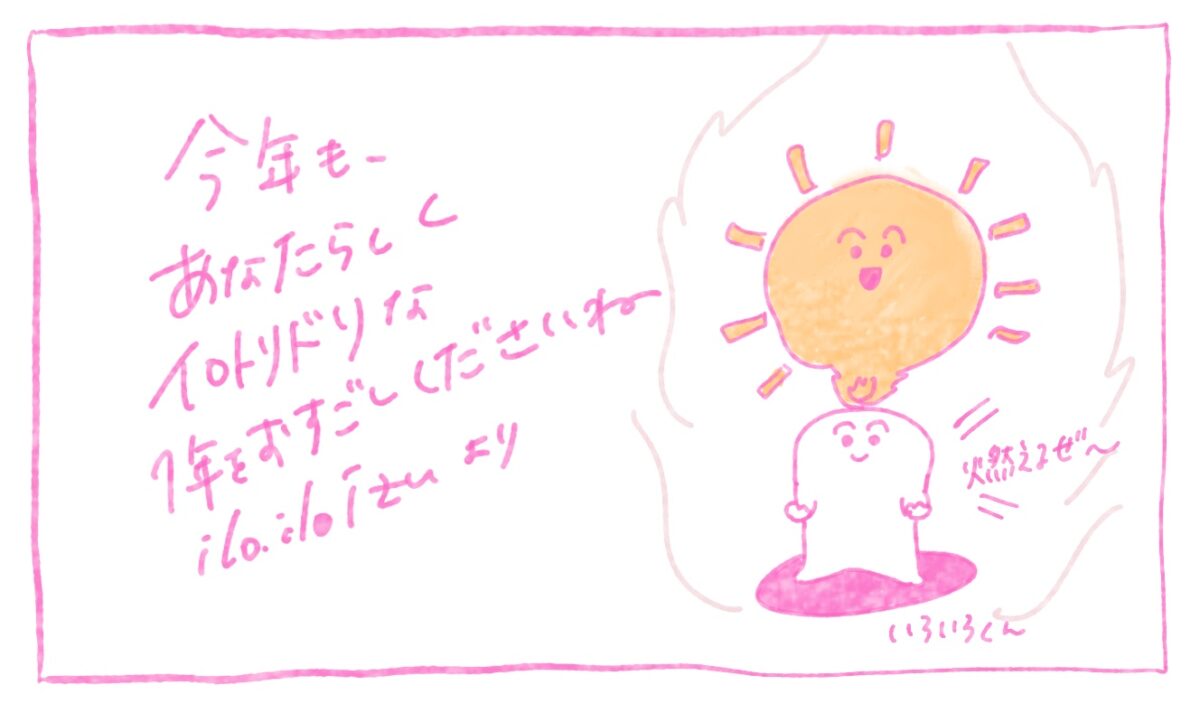 今年もー
あなたらしく
イロトリドリな
1年をおすごしくださいねー
ilo.ilo Izuより
燃えるぜ〜
いろいろくん